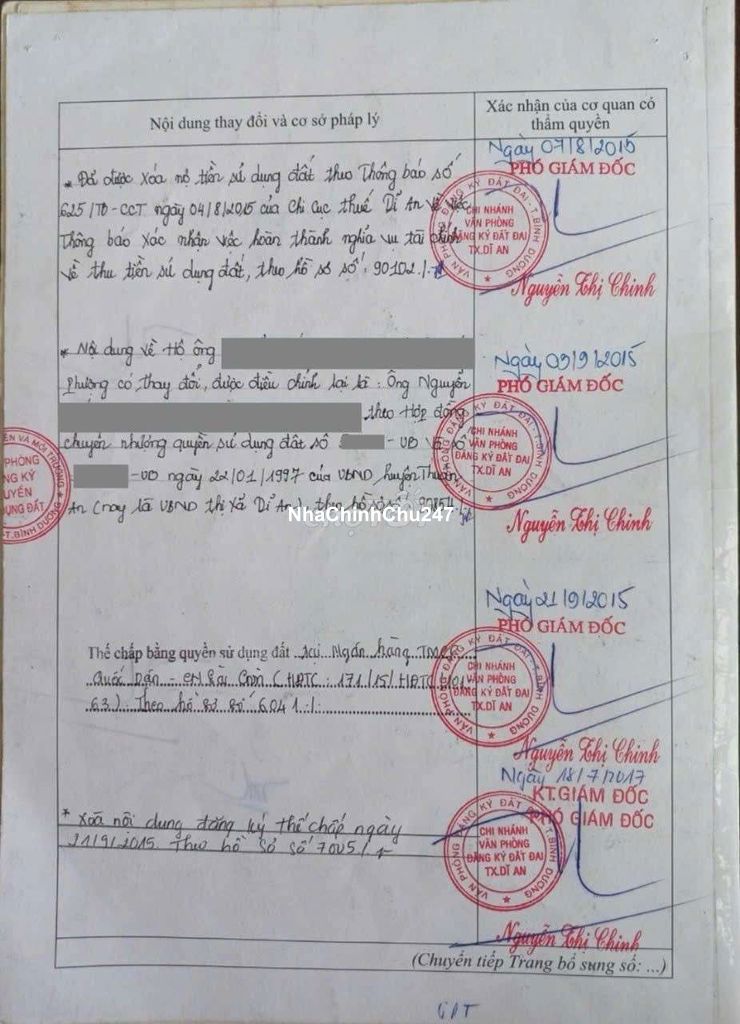 Nội dung thay đổi và cơ sở pháp lý
Xác nhận của cơ quan có
thẩm quyền
* Đã được xóa nợ tiền sử dụng đất theo Thông báo số
625/TB-CCT ngày 04/8/2015 của Chi Cục thuế Dĩ An về việc
Thông báo xác nhận việc hoàn thành nghĩa vụ tài chính
về thu tiền sử dụng đất, theo hồ sơ số: 90102./.
Ngày 07/8/2015
PHÓ GIÁM ĐỐC
VĂN PHÒNG ĐĂNG KÝ ĐẤT ĐAI - T.BÌNH DƯƠNG
CHI NHÁNH
VĂN PHÒNG
ĐĂNG KÝ ĐẤT ĐAI
TX.DĨ AN
Nguyễn Thị Chinh
* Nội dung về Hộ ông
Phượng có thay đổi, được điều chỉnh lại là: Ông Nguyễn
theo Hợp đồng
chuyển nhượng quyền sử dụng đất số - UB
-UB ngày 22/01/1997 của UBND huyện Thuận
An (nay là UBND thị xã Dĩ An), theo hồ sơ số:
Ngày 09/9/2015
PHÓ GIÁM ĐỐC
VĂN PHÒNG ĐĂNG KÝ ĐẤT ĐAI - T.BÌNH DƯƠNG
CHI NHÁNH
VĂN PHÒNG
ĐĂNG KÝ ĐẤT ĐAI
TX.DĨ AN
Nguyễn Thị Chinh
ÊN VÀ MÔI TRƯỜNG
PHÒNG
NG KÝ
UYỀN
DỤNG ĐẤT
-T.BÌNH DƯƠNG
NhaChinhChu247
Thế chấp bằng quyền sử dụng đất tại Ngân hàng TMCP
Quốc Dân - CN Sài Gòn (HĐTC: 171/15/HĐTC/101
63) Theo hồ sơ số 6041./.
Ngày 21/9/2015
PHÓ GIÁM ĐỐC
VĂN PHÒNG ĐĂNG KÝ ĐẤT ĐAI - T.BÌNH DƯƠNG
CHI NHÁNH
VĂN PHÒNG
ĐĂNG KÝ ĐẤT ĐAI
TX.DĨ AN
Nguyễn Thị Chinh
* Xoá nội dung đăng ký thế chấp ngày
21/9/2015 theo hồ sơ số 7005/.
Ngày 18/7/2017
KT.GIÁM ĐỐC
PHÓ GIÁM ĐỐC
VĂN PHÒNG ĐĂNG KÝ ĐẤT ĐAI - T.BÌNH DƯƠNG
CHI NHÁNH
VĂN PHÒNG
ĐĂNG KÝ ĐẤT ĐAI
TX.DĨ AN
Nguyễn Thị Chinh
(Chuyển tiếp Trang bổ sung số: ...)